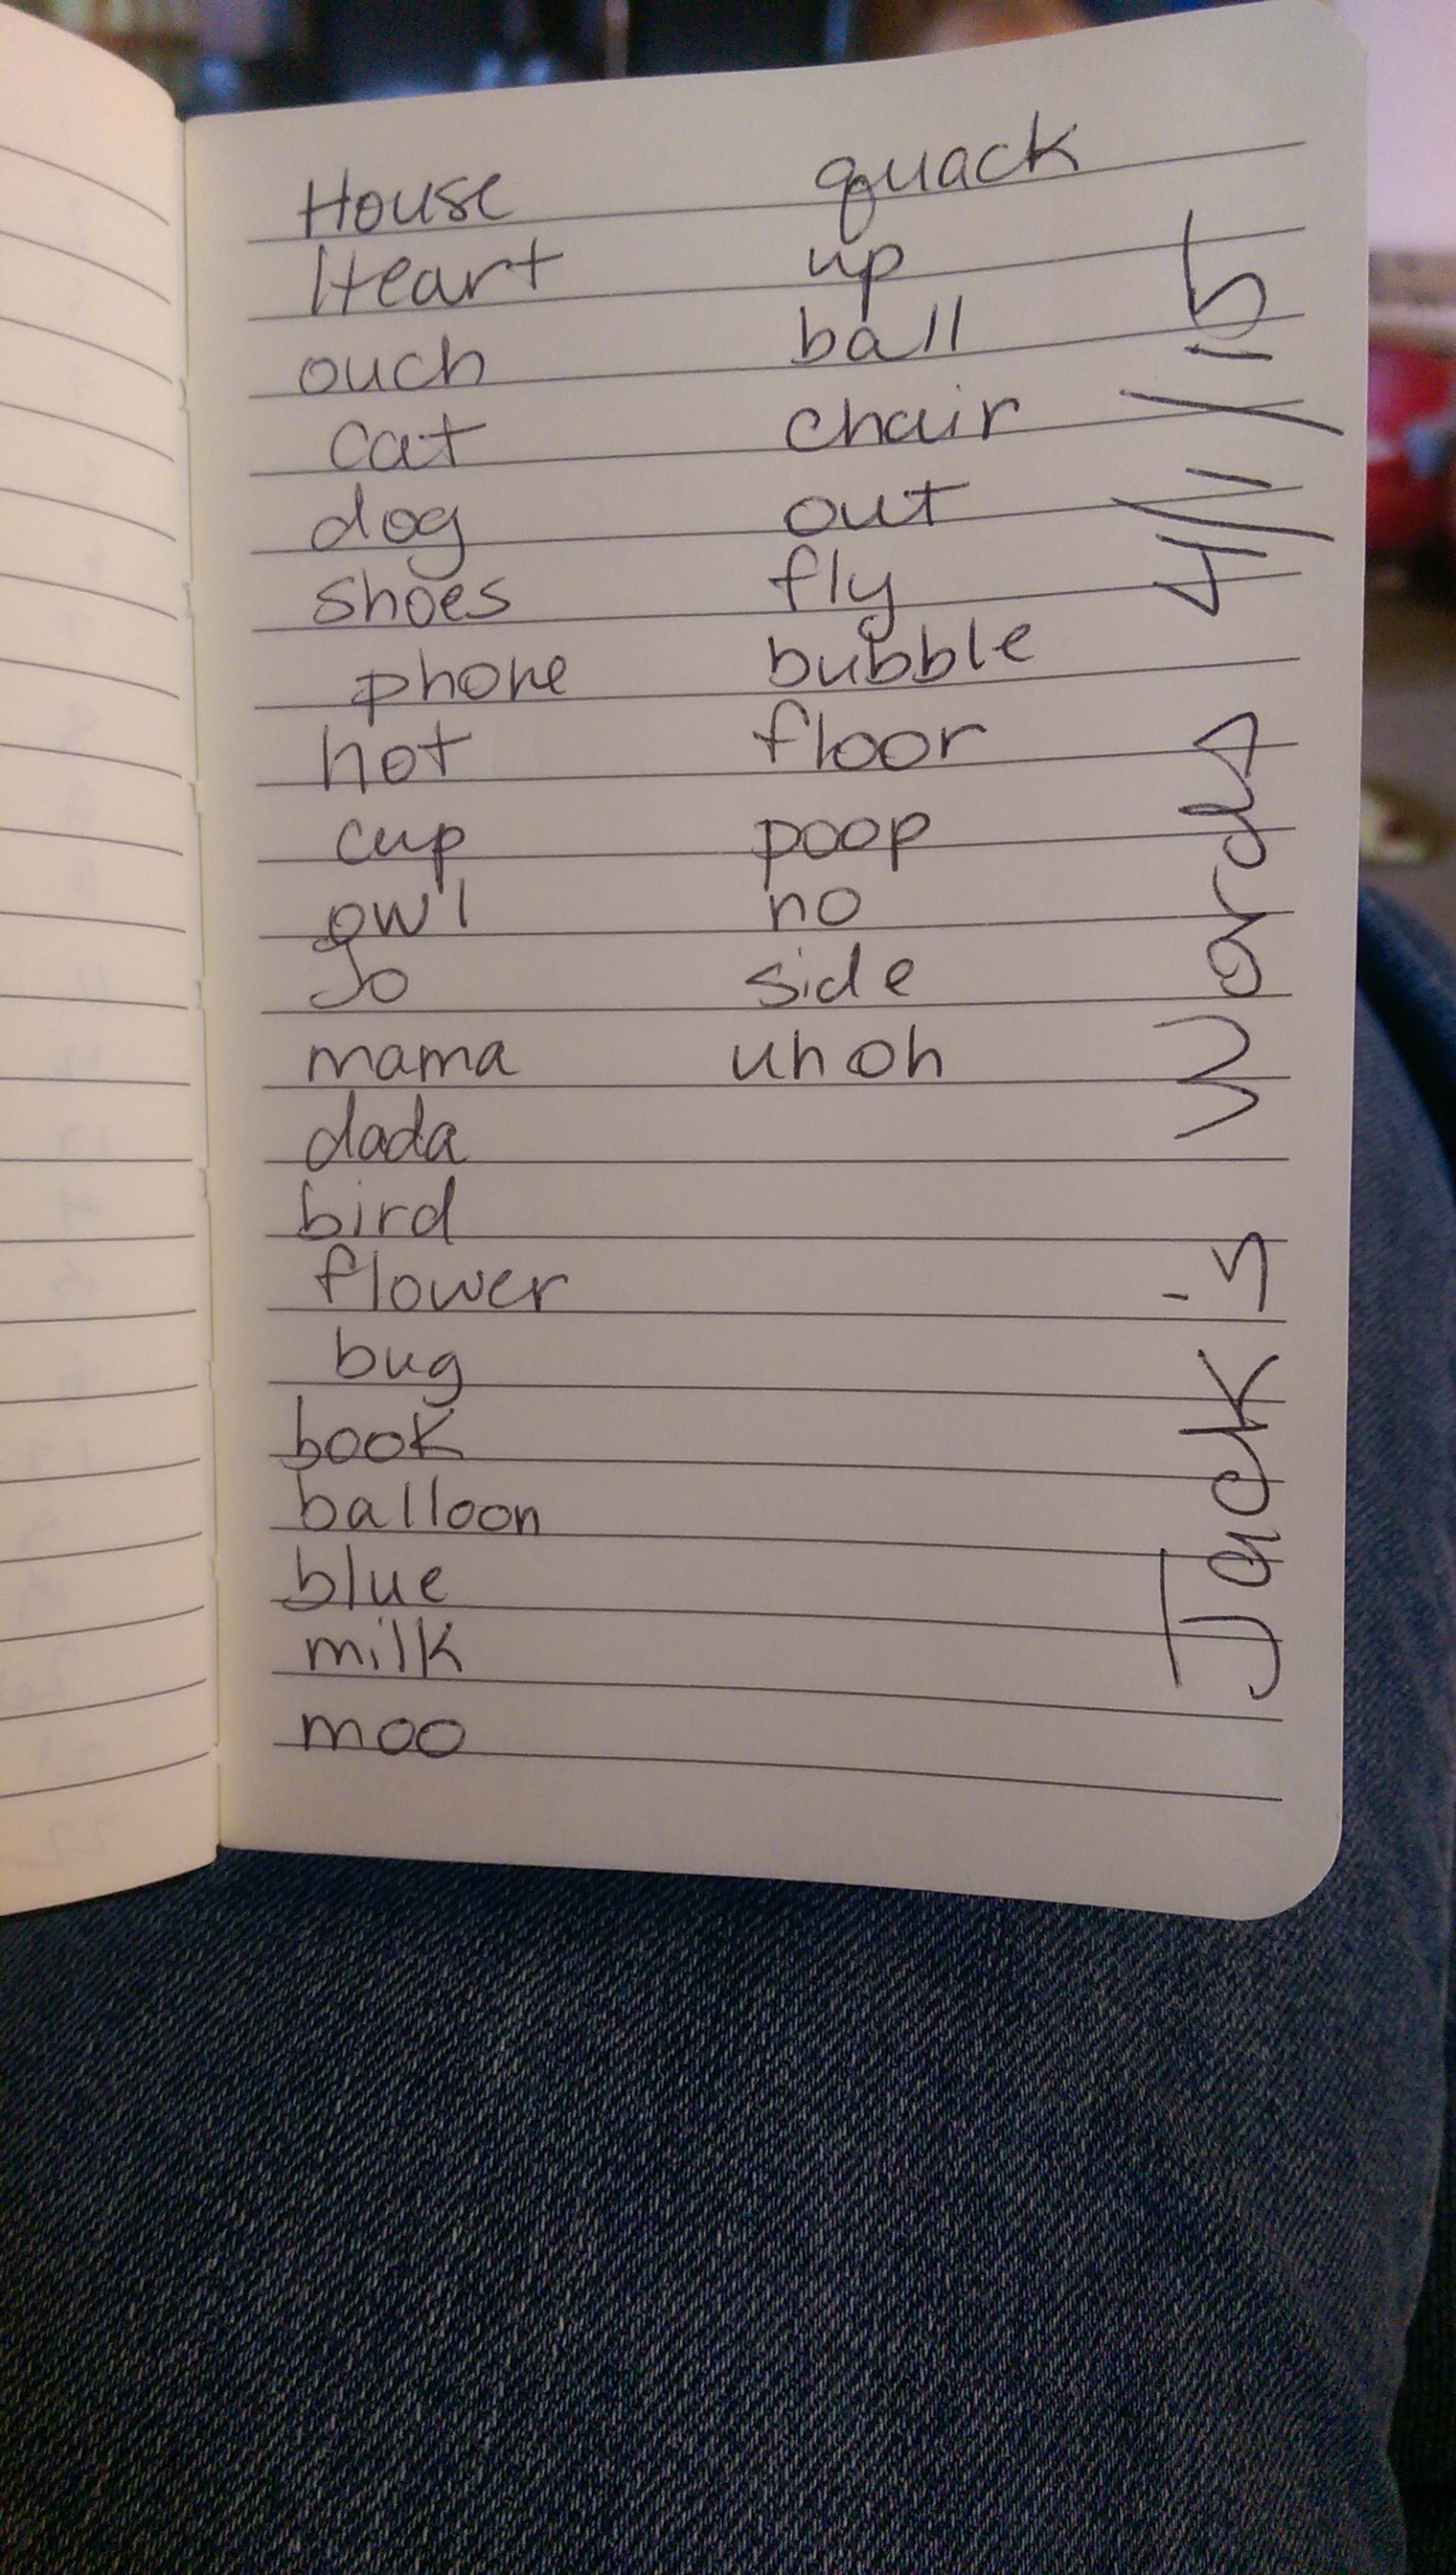 House
Heart
ouch
cat
dog
shoes
phone
hot
cup
owl
Jo
mama
dada
bird
flower
bug
book
balloon
blue
milk
moo
quack
up
ball
chair
out
fly
bubble
floor
poop
no
side
uh oh
Jack's Words 4/1/15